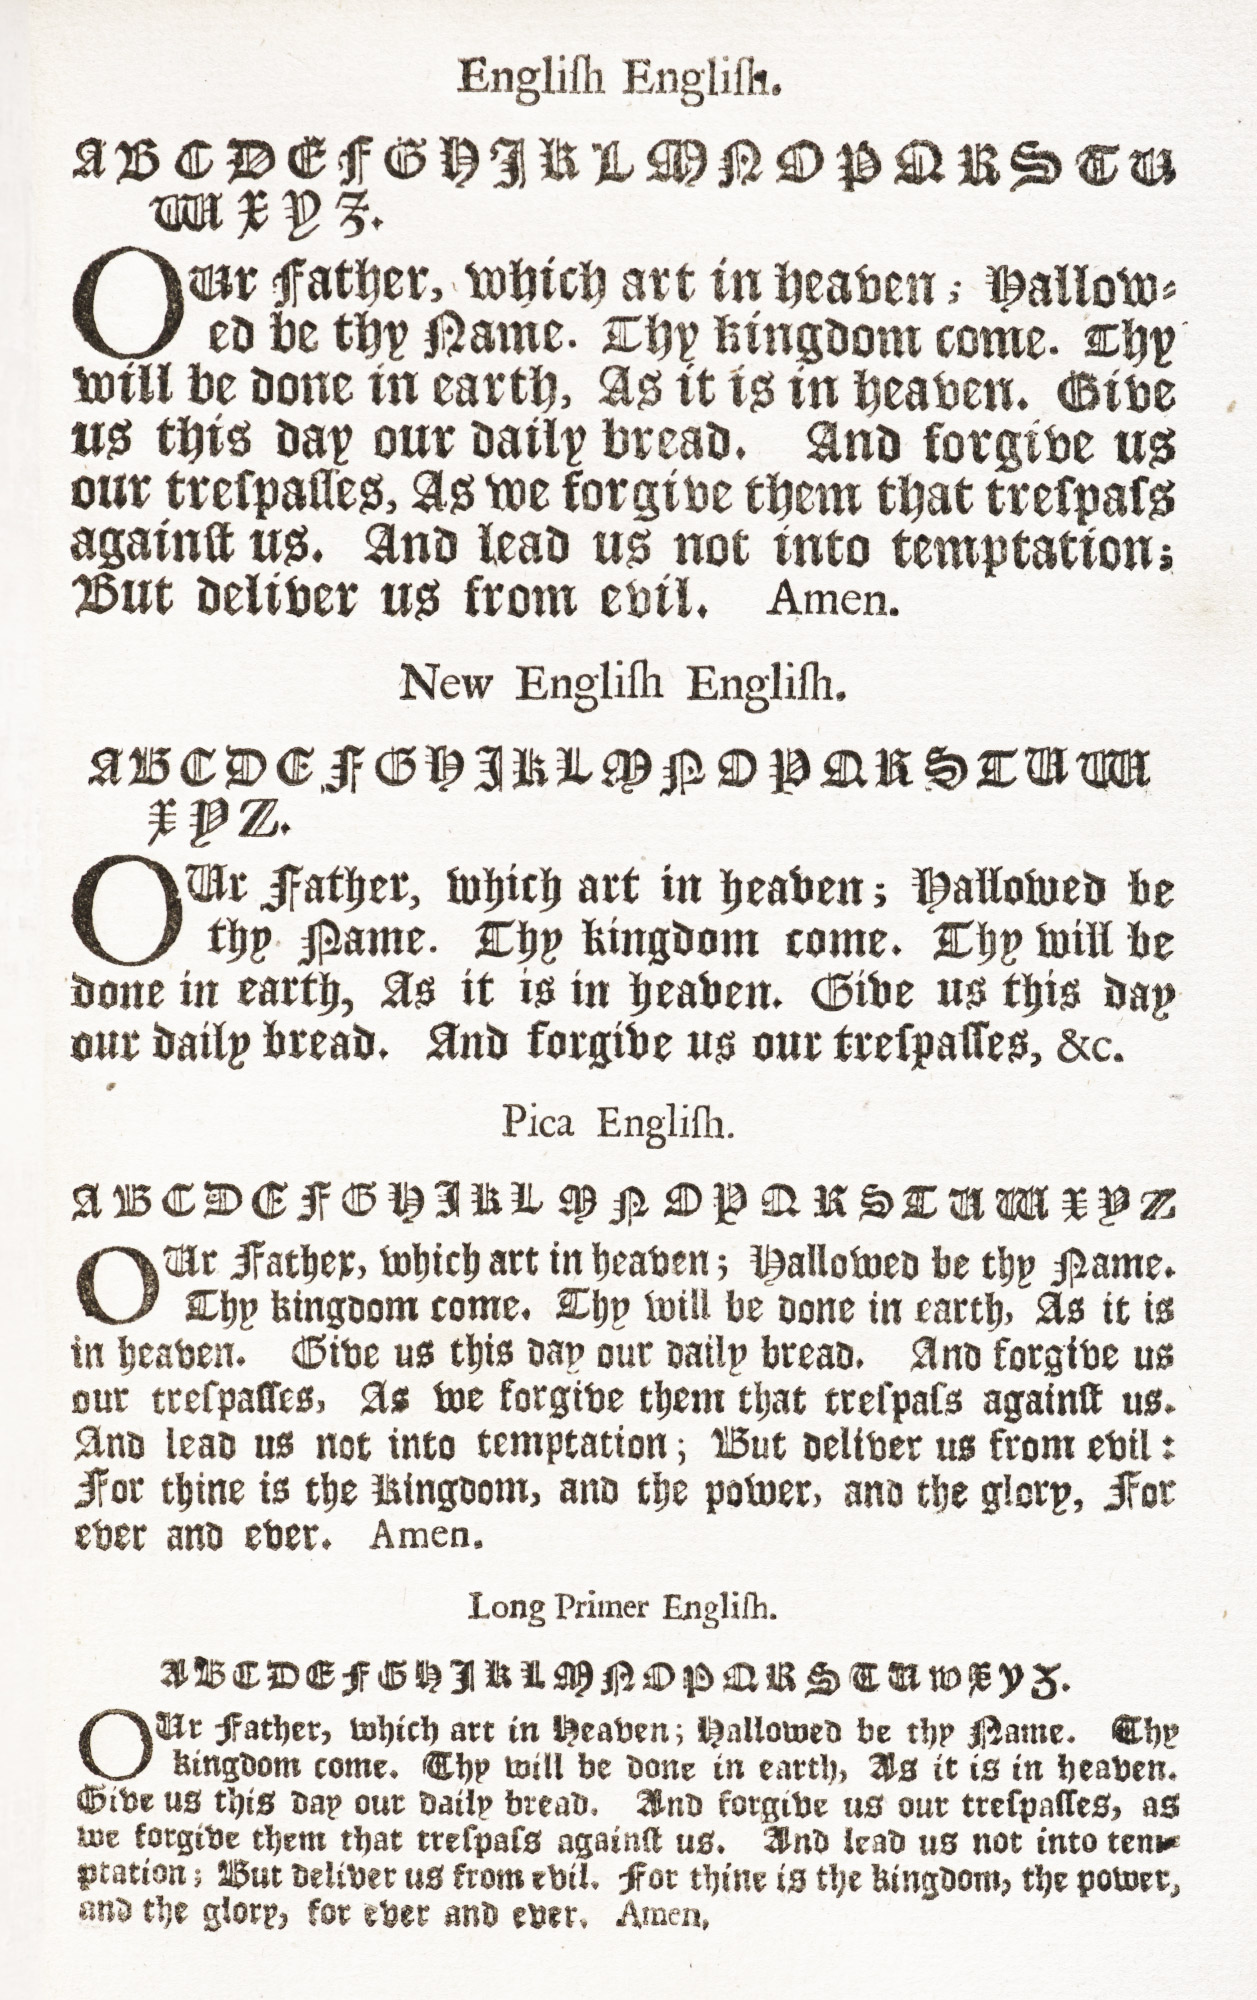 Engliſh Engliſh.
A B C D E F G H I K L M N O P Q R S T U
W X Y Z.
OUr Father, which art in heaven; Hallow-
ed be thy Name. Thy kingdom come. Thy
will be done in earth, As it is in heaven. Give
us this day our daily bread. And forgive us
our treſpaſſes, As we forgive them that treſpaſs
againſt us. And lead us not into temptation;
But deliver us from evil. Amen.
New Engliſh Engliſh.
A B C D E F G H I K L M N O P Q R S T U W
X Y Z.
OUr Father, which art in heaven; Hallowed be
thy Name. Thy kingdom come. Thy will be
done in earth, As it is in heaven. Give us this day
our daily bread. And forgive us our treſpaſſes, &c.
Pica Engliſh.
A B C D E F G H I K L M N O P Q R S T U W X Y Z
OUr Father, which art in heaven; Hallowed be thy Name.
Thy kingdom come. Thy will be done in earth, As it is
in heaven. Give us this day our daily bread. And forgive us
our treſpaſſes, As we forgive them that treſpaſs againſt us.
And lead us not into temptation; But deliver us from evil:
For thine is the Kingdom, and the power, and the glory, For
ever and ever. Amen.
Long Primer Engliſh.
A B C D E F G H I K L M N O P Q R S T U W X Y Z.
OUr Father, which art in Heaven; Hallowed be thy Name. Thy
kingdom come. Thy will be done in earth, As it is in heaven.
Give us this day our daily bread. And forgive us our treſpaſſes, as
we forgive them that treſpaſs againſt us. And lead us not into tem-
ptation; But deliver us from evil. For thine is the kingdom, the power,
and the glory, for ever and ever. Amen.